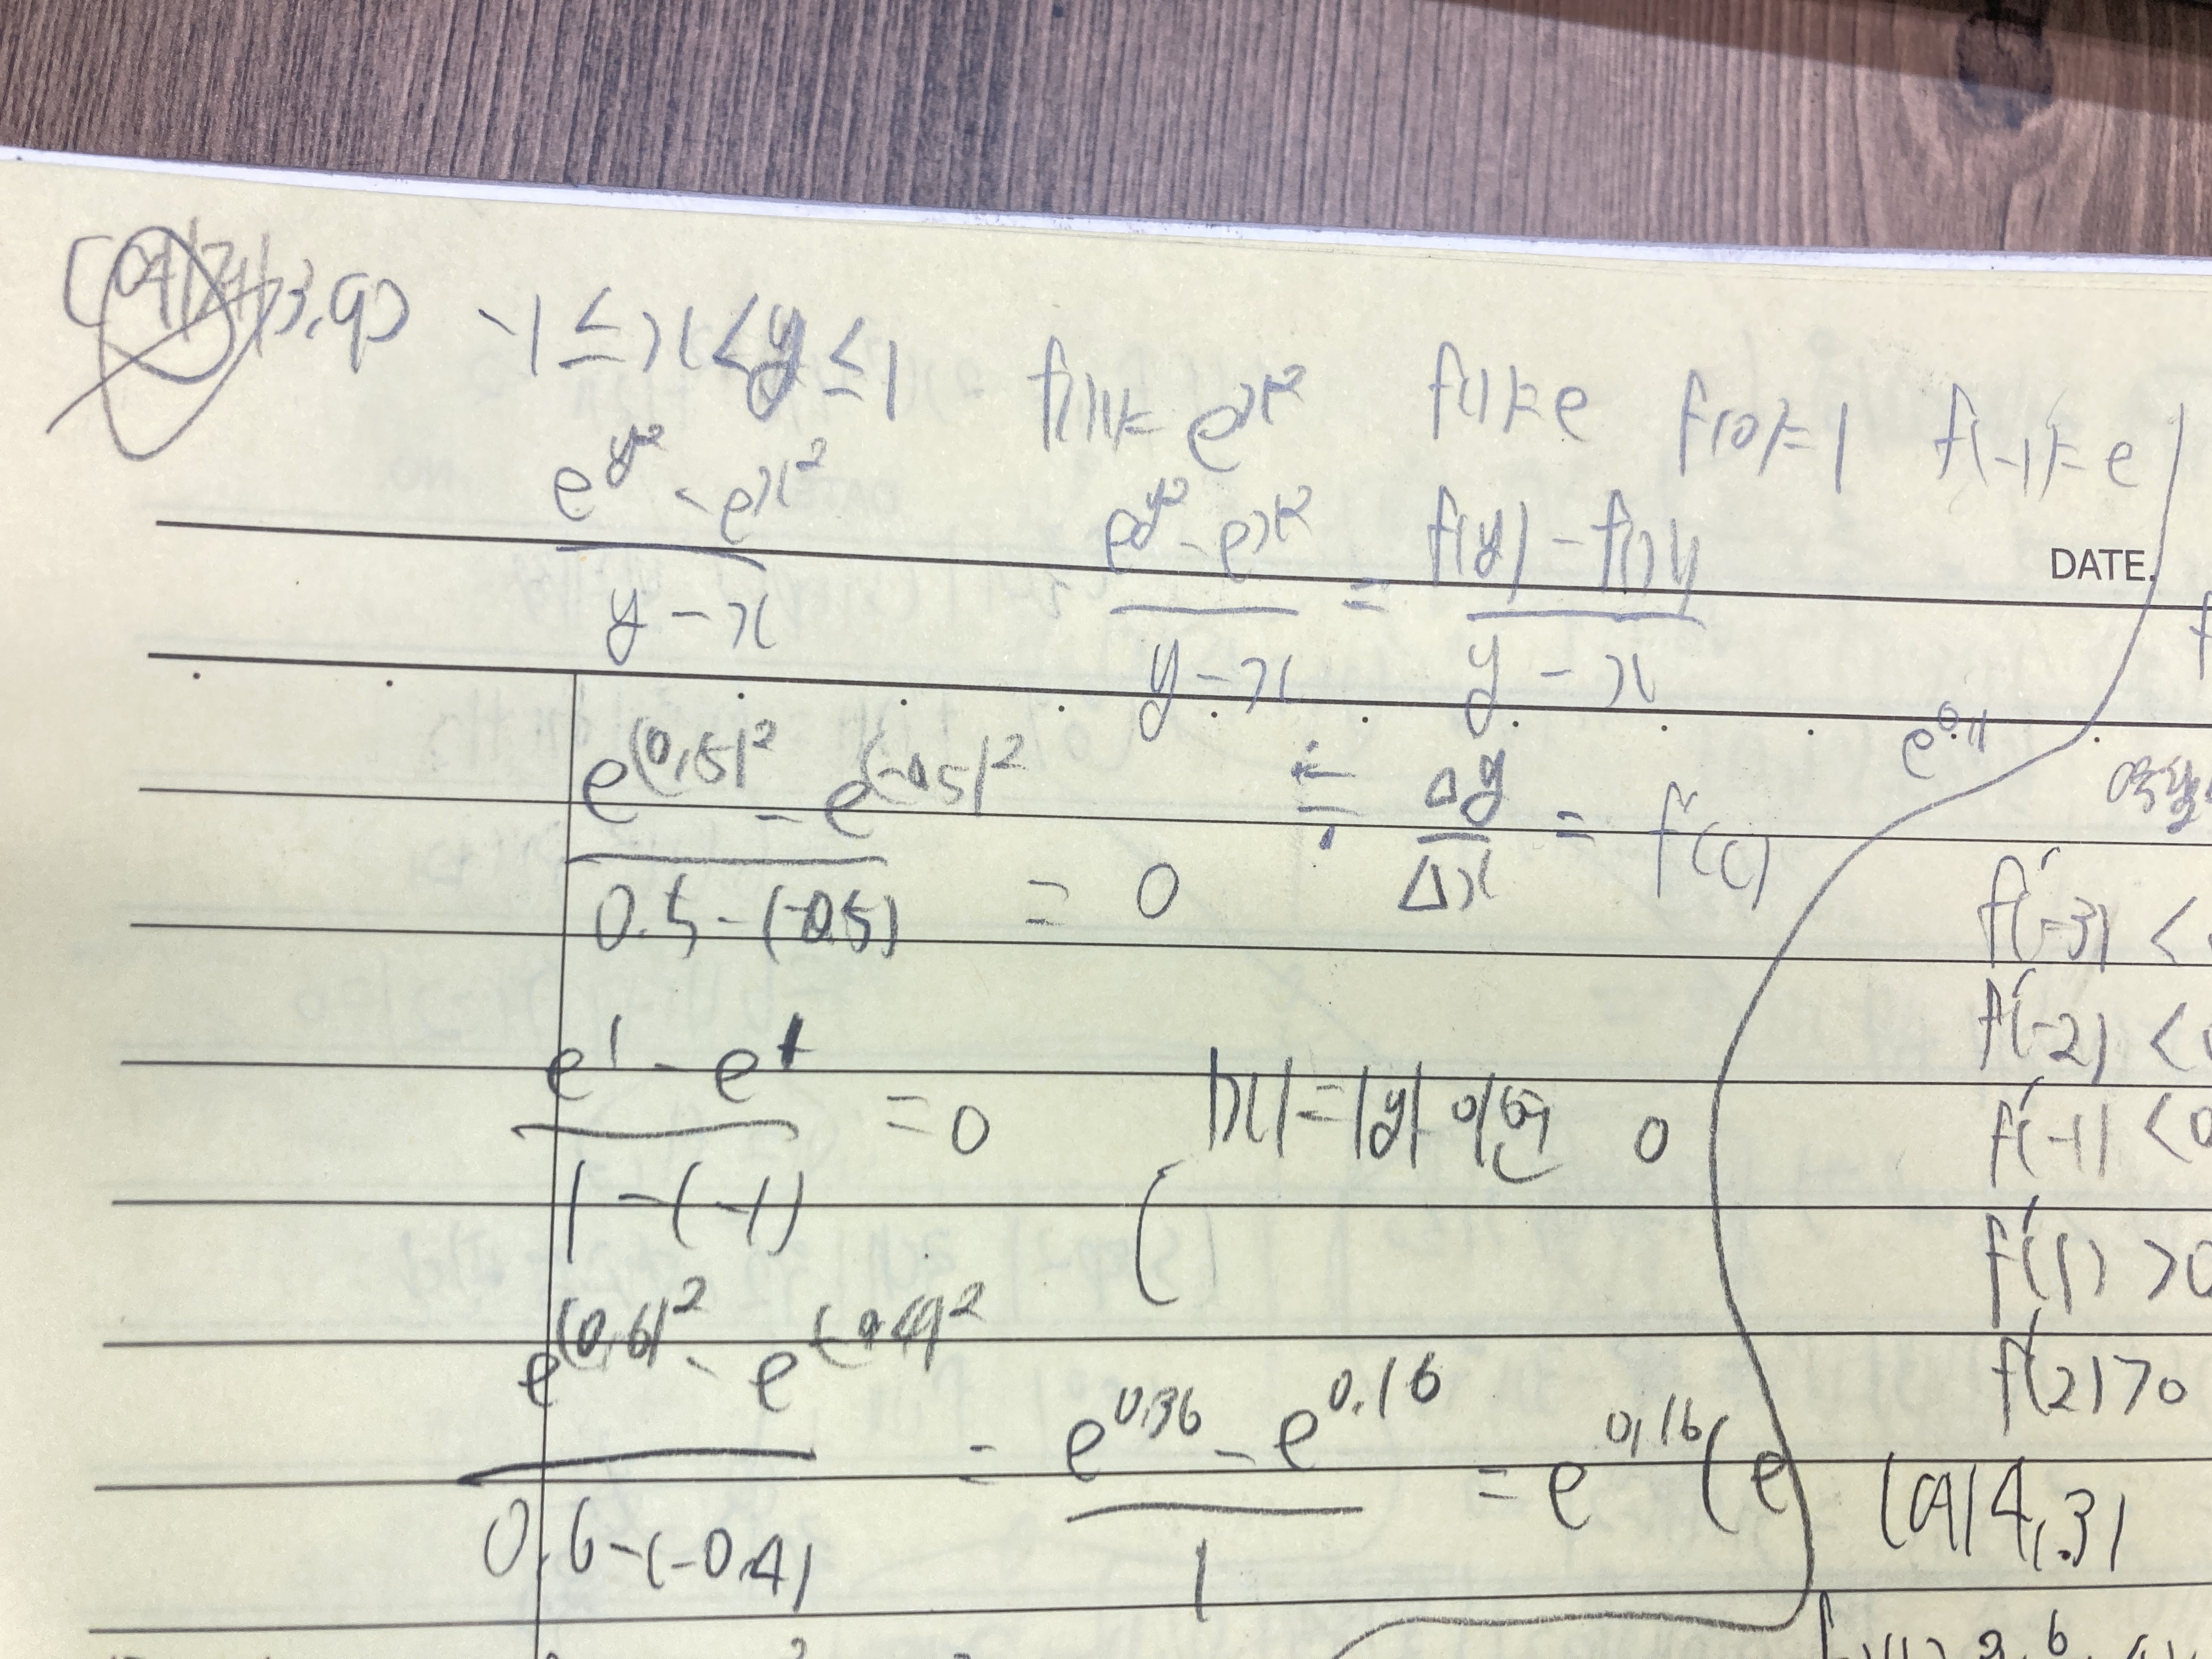 (예제3.9) -1 ≤ x < y ≤ 1 f(x)= e^{x^2} f(1)= e f(0)= 1 f(-1)= e
\frac{e^{y^2} - e^{x^2}}{y - x} \frac{e^{y^2} - e^{x^2}}{y - x} = \frac{f(y) - f(x)}{y - x}
DATE.
\frac{e^{(0.5)^2} - e^{(-0.5)^2}}{0.5 - (-0.5)} = 0 ≒ \frac{Δy}{Δx} = f'(c)
e^{0.11}
f'(-3) <
f'(-2) <
\frac{e^1 - e^1}{1 - (-1)} = 0 |x| = |y| 이면 0
f'(-1) < 0
f'(1) > 0
f'(2) > 0
\frac{e^{(0.6)^2} - e^{(-0.4)^2}}{0.6 - (-0.4)} = \frac{e^{0.36} - e^{0.16}}{1} = e^{0.16} (e
4.3)